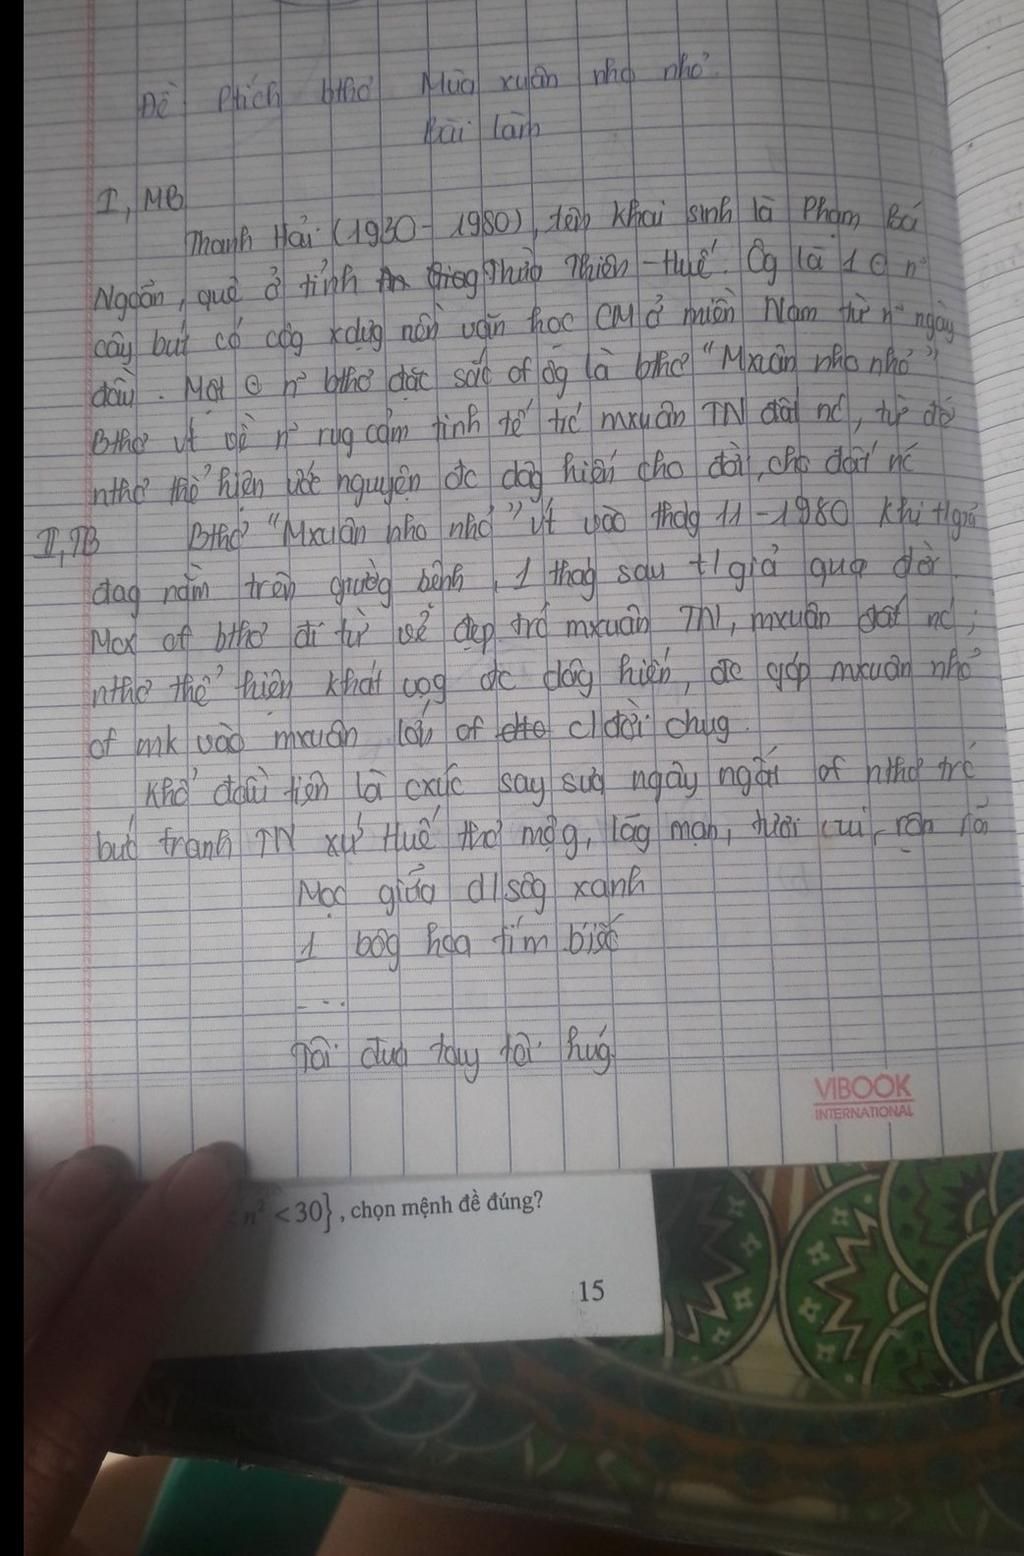 Đề Ptích bthơ Mùa xuân nho nhỏ
Bài làm
I, MB
Thanh Hải (1930 - 1980), tên khai sinh là Phạm Bá
Ngoãn, quê ở tỉnh Thừa Thiên - Huế. Ôg là 1 n~
cây bút có côg xdựg nền văn học CM ở miền Nam từ n~ ngày
đầu. Một n~ bthơ đặc sắc of ôg là bthơ "Mxuân nho nhỏ"
Bthơ vt về n~ rug cảm tinh tế trc mxuân TN đất nc, từ đó
nthơ thể hiện ước nguyện đc dâg hiến cho đời, cho đất nc
II, TB Bthơ "Mxuân nho nhỏ" vt vào thág 11 - 1980 khi t/giả
đag nằm trên giườg bệnh, 1 thág sau t/giả qua đời.
Mcx of bthơ đi từ vẻ đẹp trc mxuân TN, mxuân đất nc;
nthơ thể hiện khát vọg đc dâg hiến, đc góp mxuân nhỏ
of mk vào mxuân lớn of c/đời chug.
Khổ đầu tiên là cxúc say sưa ngây ngất of nthơ trc
bức tranh TN xứ Huế thơ mộg, lãg mạn, tươi vui, rộn rã
Mọc giữa d/sôg xanh
1 bôg hoa tím biếc
....
Tôi đưa tay tôi hứg
VIBOOK
INTERNATIONAL
n² < 30}, chọn mệnh đề đúng?
15